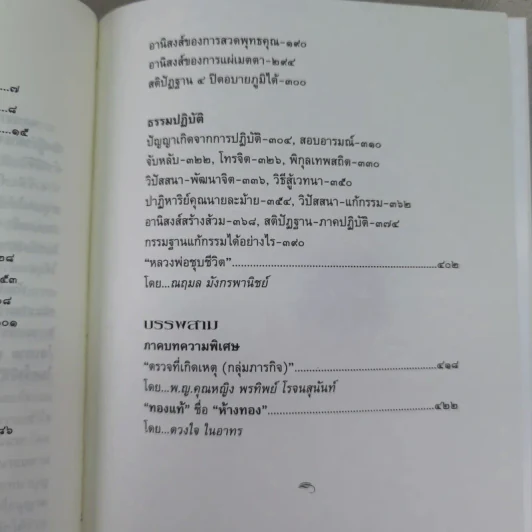 อานิสงส์ของการสวดพุทธคุณ-๑๙๐
อานิสงส์ของการแผ่เมตตา-๒๙๔
สติปัฏฐาน ๔ ปิดอบายภูมิได้-๓๐๐
ธรรมปฏิบัติ
ปัญญาเกิดจากการปฏิบัติ-๓๐๔, สอบอารมณ์-๓๑๐
จับหลับ-๓๒๒, โทรจิต-๓๒๖, พิกุลเทพสถิต-๓๓๐
วิปัสสนา-พัฒนาจิต-๓๓๖, วิธีสู้เวทนา-๓๕๐
ปาฏิหาริย์คุณนายละม้าย-๓๕๔, วิปัสสนา-แก้กรรม-๓๖๒
อานิสงส์สร้างส้วม-๓๖๘, สติปัฏฐาน-ภาคปฏิบัติ-๓๗๔
กรรมฐานแก้กรรมได้อย่างไร-๓๙๐
“หลวงพ่อชุบชีวิต”...........................................๔๐๒
โดย...ณฤมล มังกรพานิชย์
บรรพสาม
ภาคบทความพิเศษ
“ตรวจที่เกิดเหตุ (กลุ่มภารกิจ)”..............................๔๑๘
โดย...พ.ญ.คุณหญิง พรทิพย์ โรจนสุนันท์
“ทองแท้” ชื่อ “ห้างทอง”....................................๔๒๒
โดย...ดวงใจ ในอาทร
....๗
....๘
....๑๕